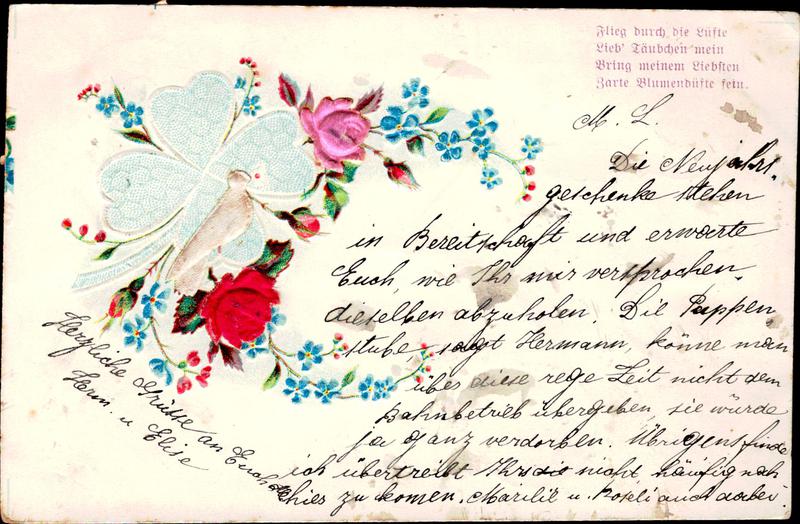 Flieg durch die Lüfte
Lieb' Täubchen mein
Bring meinem Liebsten
Zarte Blumendüfte fein.
M. L.
Die Neujahrs-
geschenke stehen
in Bereitschaft und erwarte
Euch, wie Ihr mir versprochen,
dieselben abzuholen. Die Puppen,
stube sagt Hermann, könne man
über diese rege Zeit nicht dem
Bahnbetrieb übergeben, sie würde
ja ganz verdorben. Übrigens finde
ich übertreibt Ihrs nicht häufig nach
hies zu komen. u. Roseli auch dabei
Herzliche Grüsse an Euch
Herm. u Elise